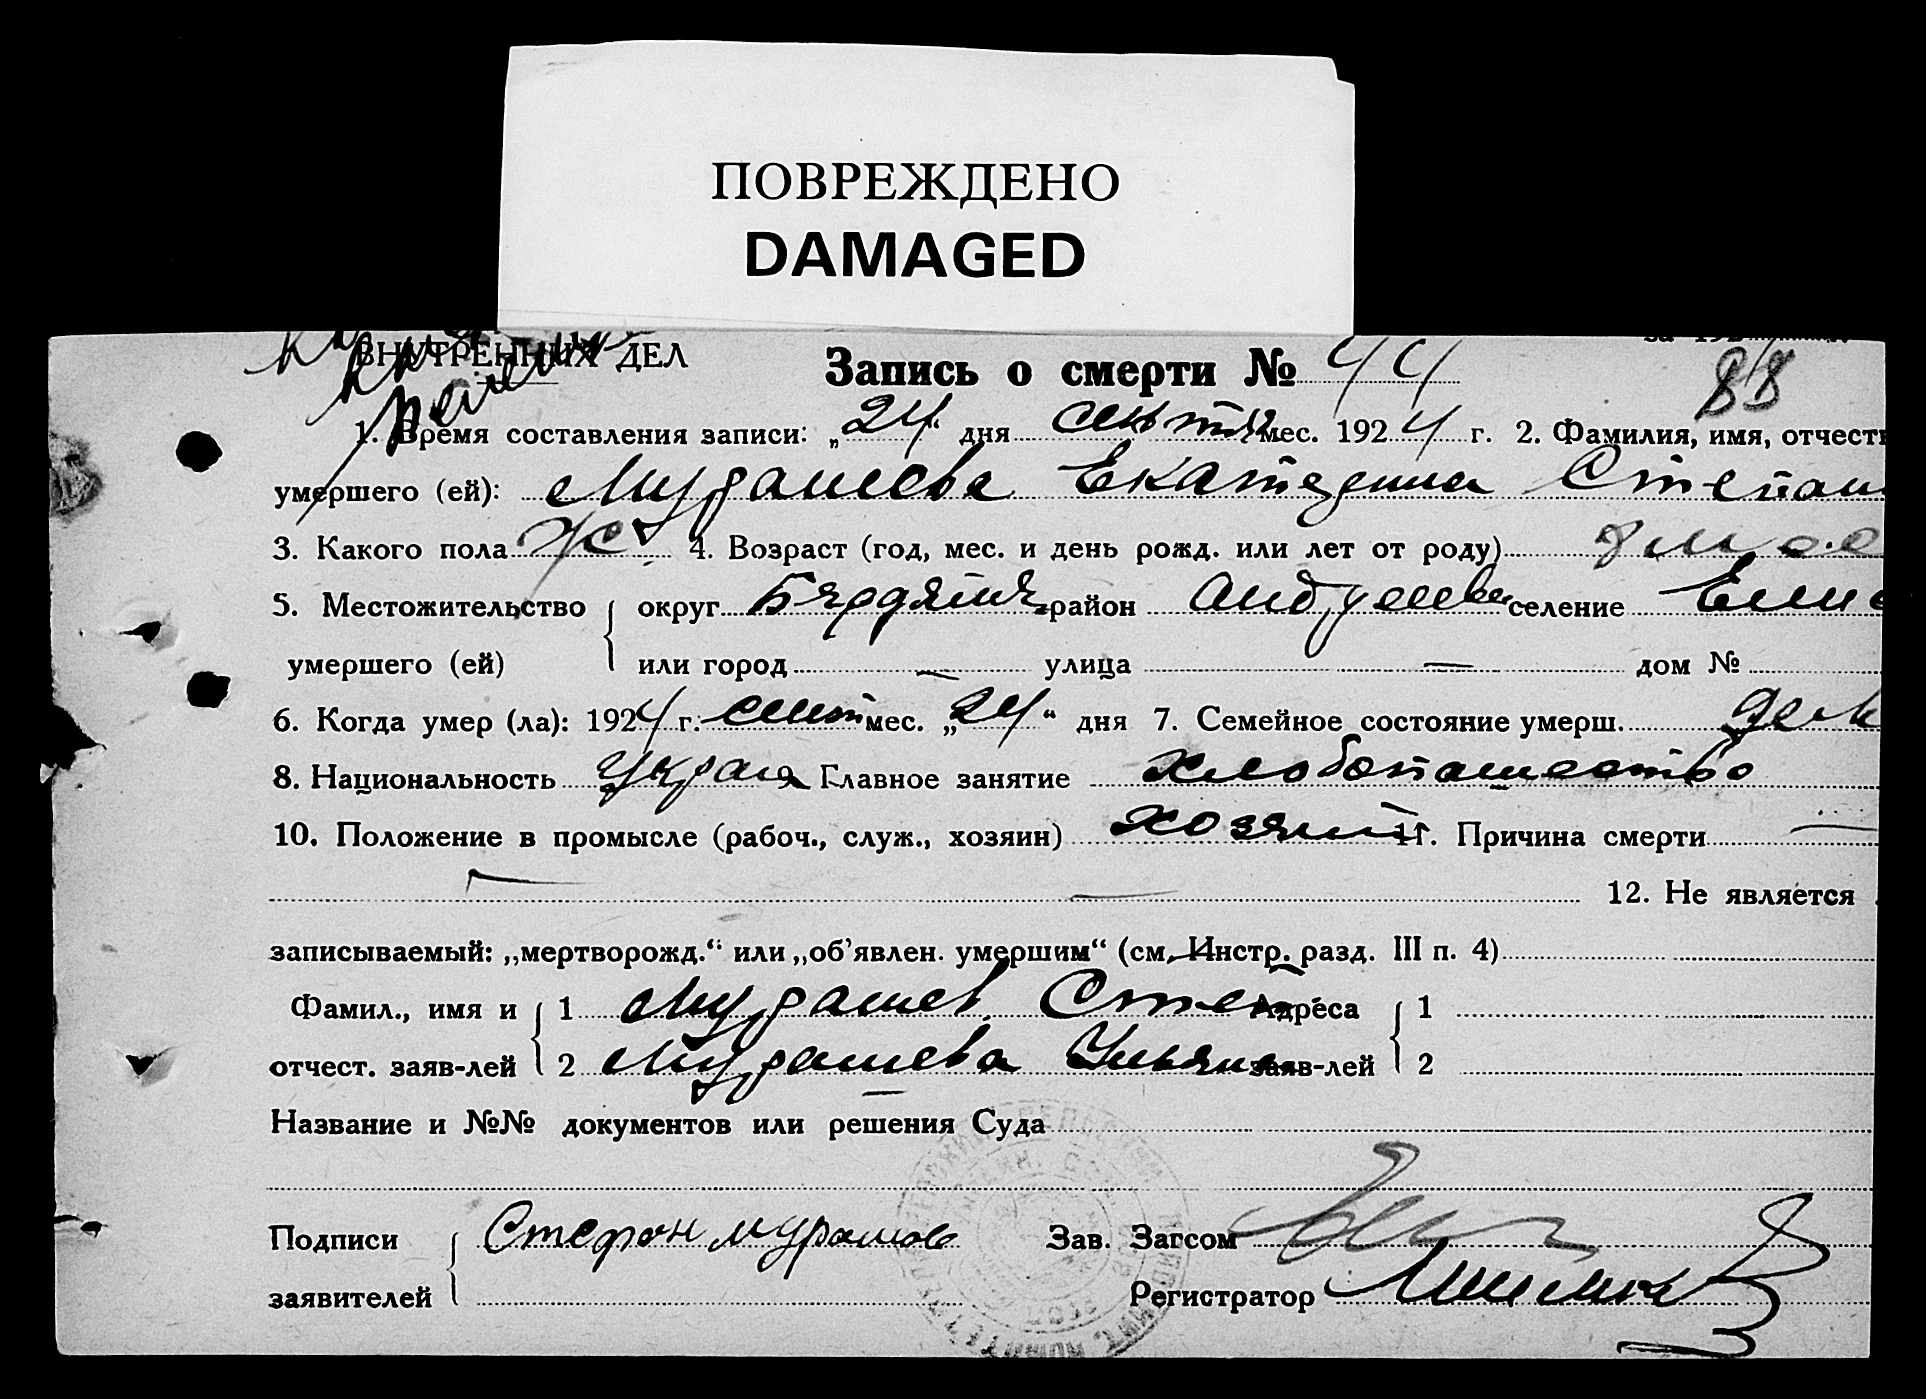 ПОВРЕЖДЕНО
DAMAGED
ВНУТРЕННИХ ДЕЛ
Запись о смерти № 44
88
1. Время составления записи: „24“ дня сентя мес. 1924 г. 2. Фамилия, имя, отчест
умершего (ей): Мурашева Екатерина Степан
3. Какого пола Ж 4. Возраст (год, мес. и день рожд. или лет от роду)
5. Местожительство округ Бердянск район Андреевск селение
умершего (ей) или город — улица — дом №
6. Когда умер (ла): 1924 г. сент мес. „24“ дня 7. Семейное состояние умерш.
8. Национальность украин Главное занятие хлебопашество
10. Положение в промысле (рабоч., служ., хозяин) хозяин 11. Причина смерти —
— — 12. Не является
записываемый: „мертворожд.“ или „об’явлен. умершим“ (см. Инстр. разд. III п. 4)
Фамил., имя и 1 Мурашев Степ Адреса 1
отчест. заяв-лей 2 Мурашева Ульяна заяв-лей 2
Название и №№ документов или решения Суда
Подписи Стефан Мурашов Зав. Загсом
заявителей Регистратор